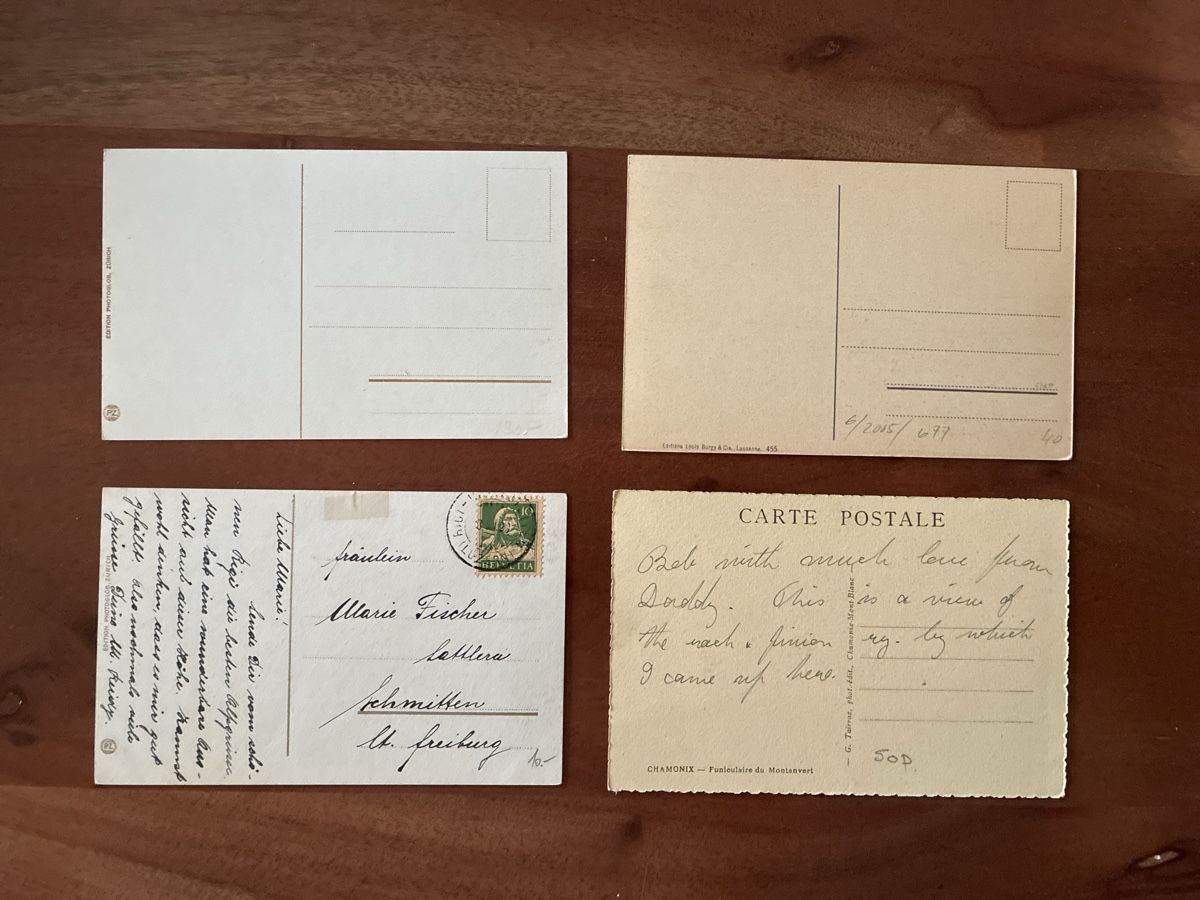 EDITION PHOTOGLOB, ZÜRICH
PZ
6/2005/ 677
40
Editions Louis Burgy & Cie., Lausanne. 455
Liebe Marie!
Sende Dir vom schö-
nen Rigi die besten Alpgrüsse.
Man hat eine wunderbare Aus-
sicht aus dieser Höhe. Kannst
wohl denken, dass es mir gut
gefällt. Also nochmals viele
Grüsse
EDITION PHOTOGLOB, ZÜRICH
PZ
10
HELVETIA
fräulein
Marie Fischer
Sattlera
Schmitten
Ct. Freiburg
10.-
CARTE POSTALE
Bob with much love from
Daddy. This is a view of
the rack & pinion ry. by which
I came up here.
G. Tairraz, phot.-édit., Chamonix-Mont-Blanc
50P.
CHAMONIX — Funiculaire du Montanvert